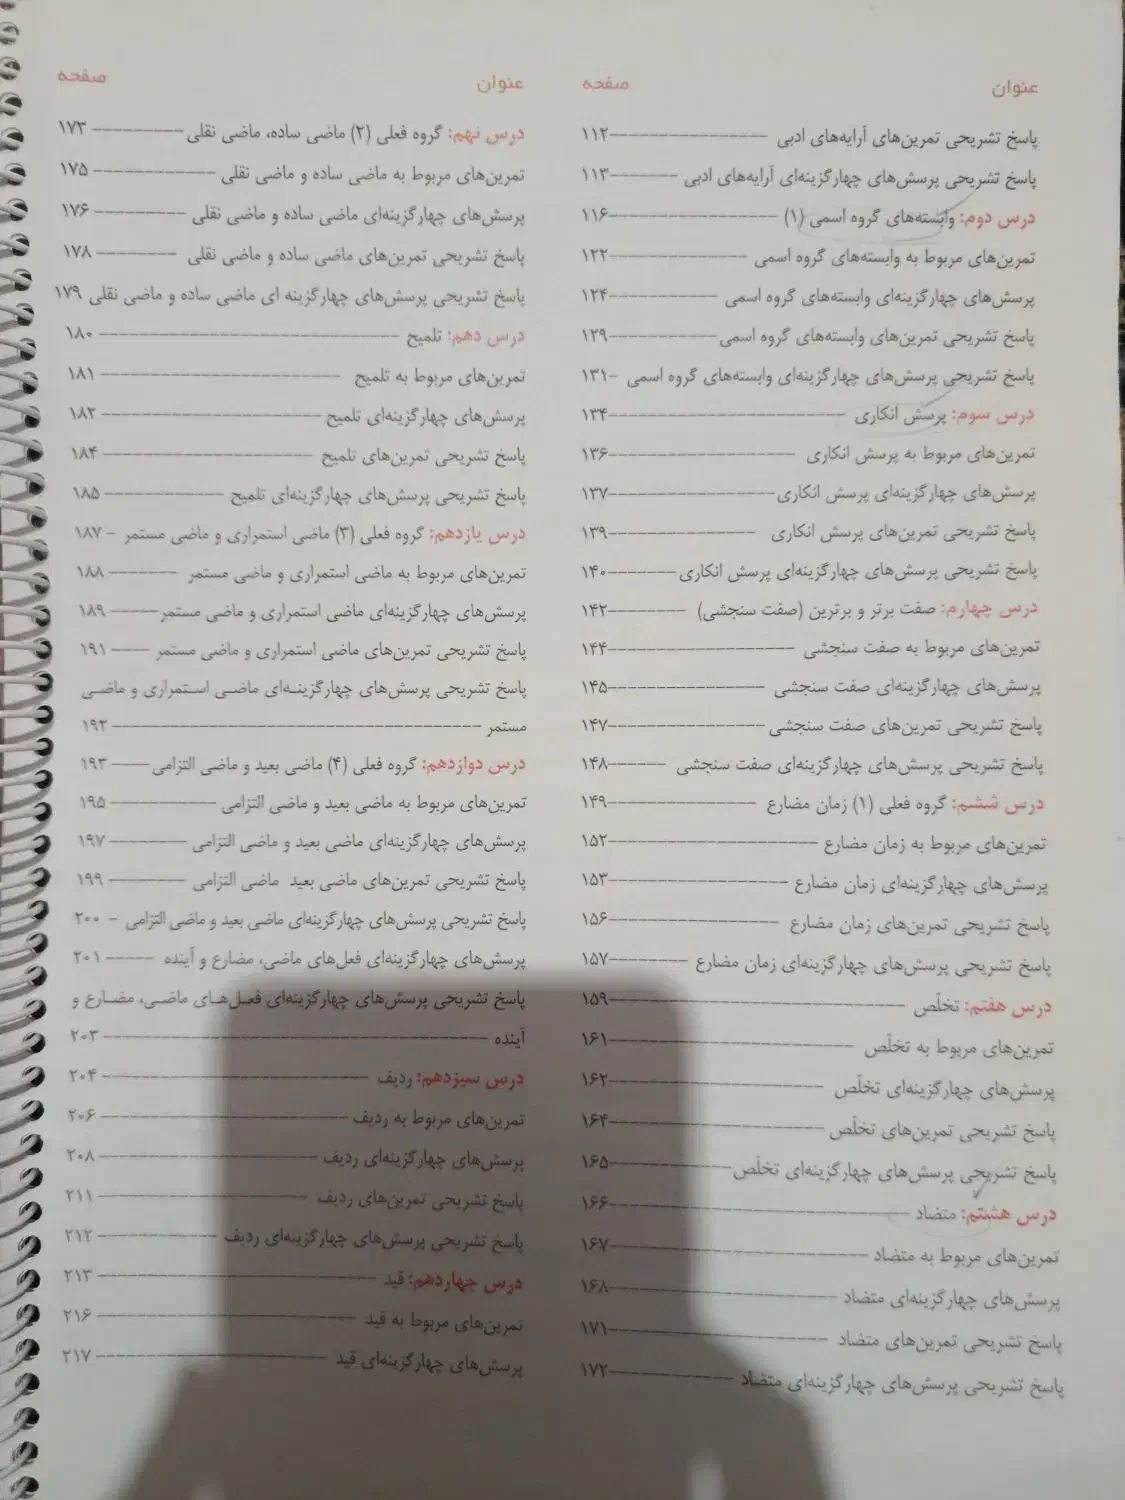 عنوان صفحه
پاسخ تشریحی تمرین‌های آرایه‌های ادبی ----------------- ۱۱۲
پاسخ تشریحی پرسش‌های چهارگزینه‌ای آرایه‌های ادبی -------- ۱۱۳
درس دوم: وابسته‌های گروه اسمی (۱) ------------------ ۱۱۶
تمرین‌های مربوط به وابسته‌های گروه اسمی --------------- ۱۲۲
پرسش‌های چهارگزینه‌ای وابسته‌های گروه اسمی ------------ ۱۲۴
پاسخ تشریحی تمرین‌های وابسته‌های گروه اسمی ------------ ۱۲۹
پاسخ تشریحی پرسش‌های چهارگزینه‌ای وابسته‌های گروه اسمی - ۱۳۱
درس سوم: پرسش انکاری -------------------------- ۱۳۴
تمرین‌های مربوط به پرسش انکاری -------------------- ۱۳۶
پرسش‌های چهارگزینه‌ای پرسش انکاری ------------------ ۱۳۷
پاسخ تشریحی تمرین‌های پرسش انکاری ---------------- ۱۳۹
پاسخ تشریحی پرسش‌های چهارگزینه‌ای پرسش انکاری -------- ۱۴۰
درس چهارم: صفت برتر و برترین (صفت سنجشی) --------- ۱۴۲
تمرین‌های مربوط به صفت سنجشی -------------------- ۱۴۴
پرسش‌های چهارگزینه‌ای صفت سنجشی ----------------- ۱۴۵
پاسخ تشریحی تمرین‌های صفت سنجشی ----------------- ۱۴۷
پاسخ تشریحی پرسش‌های چهارگزینه‌ای صفت سنجشی ------ ۱۴۸
درس ششم: گروه فعلی (۱) زمان مضارع ---------------- ۱۴۹
تمرین‌های مربوط به زمان مضارع ----------------------- ۱۵۲
پرسش‌های چهارگزینه‌ای زمان مضارع ------------------- ۱۵۳
پاسخ تشریحی تمرین‌های زمان مضارع ------------------ ۱۵۶
پاسخ تشریحی پرسش‌های چهارگزینه‌ای زمان مضارع --------- ۱۵۷
درس هفتم: تخلّص -------------------------------- ۱۵۹
تمرین‌های مربوط به تخلّص --------------------------- ۱۶۱
پرسش‌های چهارگزینه‌ای تخلّص ----------------------- ۱۶۲
پاسخ تشریحی تمرین‌های تخلّص ----------------------- ۱۶۴
پاسخ تشریحی پرسش‌های چهارگزینه‌ای تخلّص ------------- ۱۶۵
درس هشتم: متضاد -------------------------------- ۱۶۶
تمرین‌های مربوط به متضاد --------------------------- ۱۶۷
پرسش‌های چهارگزینه‌ای متضاد ------------------------ ۱۶۸
پاسخ تشریحی تمرین‌های متضاد ----------------------- ۱۷۱
پاسخ تشریحی پرسش‌های چهارگزینه‌ای متضاد ------------- ۱۷۲
عنوان صفحه
درس نهم: گروه فعلی (۲) ماضی ساده، ماضی نقلی ---------- ۱۷۳
تمرین‌های مربوط به ماضی ساده و ماضی نقلی ------------- ۱۷۵
پرسش‌های چهارگزینه‌ای ماضی ساده و ماضی نقلی ---------- ۱۷۶
پاسخ تشریحی تمرین‌های ماضی ساده و ماضی نقلی --------- ۱۷۸
پاسخ تشریحی پرسش‌های چهارگزینه ای ماضی ساده و ماضی نقلی ۱۷۹
درس دهم: تلمیح --------------------------------- ۱۸۰
تمرین‌های مربوط به تلمیح -------------------------- ۱۸۱
پرسش‌های چهارگزینه‌ای تلمیح ------------------------ ۱۸۲
پاسخ تشریحی تمرین‌های تلمیح ----------------------- ۱۸۴
پاسخ تشریحی پرسش‌های چهارگزینه‌ای تلمیح ------------- ۱۸۵
درس یازدهم: گروه فعلی (۳) ماضی استمراری و ماضی مستمر - ۱۸۷
تمرین‌های مربوط به ماضی استمراری و ماضی مستمر -------- ۱۸۸
پرسش‌های چهارگزینه‌ای ماضی استمراری و ماضی مستمر ----- ۱۸۹
پاسخ تشریحی تمرین‌های ماضی استمراری و ماضی مستمر ---- ۱۹۱
پاسخ تشریحی پرسش‌های چهارگزینـه‌ای ماضـی اسـتمراری و ماضـی
مستمر ---------------------------------------- ۱۹۲
درس دوازدهم: گروه فعلی (۴) ماضی بعید و ماضی التزامی ---- ۱۹۳
تمرین‌های مربوط به ماضی بعید و ماضی التزامی ------------ ۱۹۵
پرسش‌های چهارگزینه‌ای ماضی بعید و ماضی التزامی --------- ۱۹۷
پاسخ تشریحی تمرین‌های ماضی بعید ماضی التزامی --------- ۱۹۹
پاسخ تشریحی پرسش‌های چهارگزینه‌ای ماضی بعید و ماضی التزامی - ۲۰۰
پرسش‌های چهارگزینه‌ای فعل‌های ماضی، مضارع و آینده ------ ۲۰۱
پاسخ تشریحی پرسش‌های چهارگزینه‌ای فعـل‌هـای ماضـی، مضـارع و
آینده ----------------------------------------- ۲۰۳
درس سیزدهم: ردیف ------------------------------ ۲۰۴
تمرین‌های مربوط به ردیف --------------------------- ۲۰۶
پرسش‌های چهارگزینه‌ای ردیف ------------------------ ۲۰۸
پاسخ تشریحی تمرین‌های ردیف ----------------------- ۲۱۱
پاسخ تشریحی پرسش‌های چهارگزینه‌ای ردیف ------------- ۲۱۲
درس چهاردهم: قید ------------------------------- ۲۱۳
تمرین‌های مربوط به قید ---------------------------- ۲۱۶
پرسش‌های چهارگزینه‌ای قید ------------------------- ۲۱۷